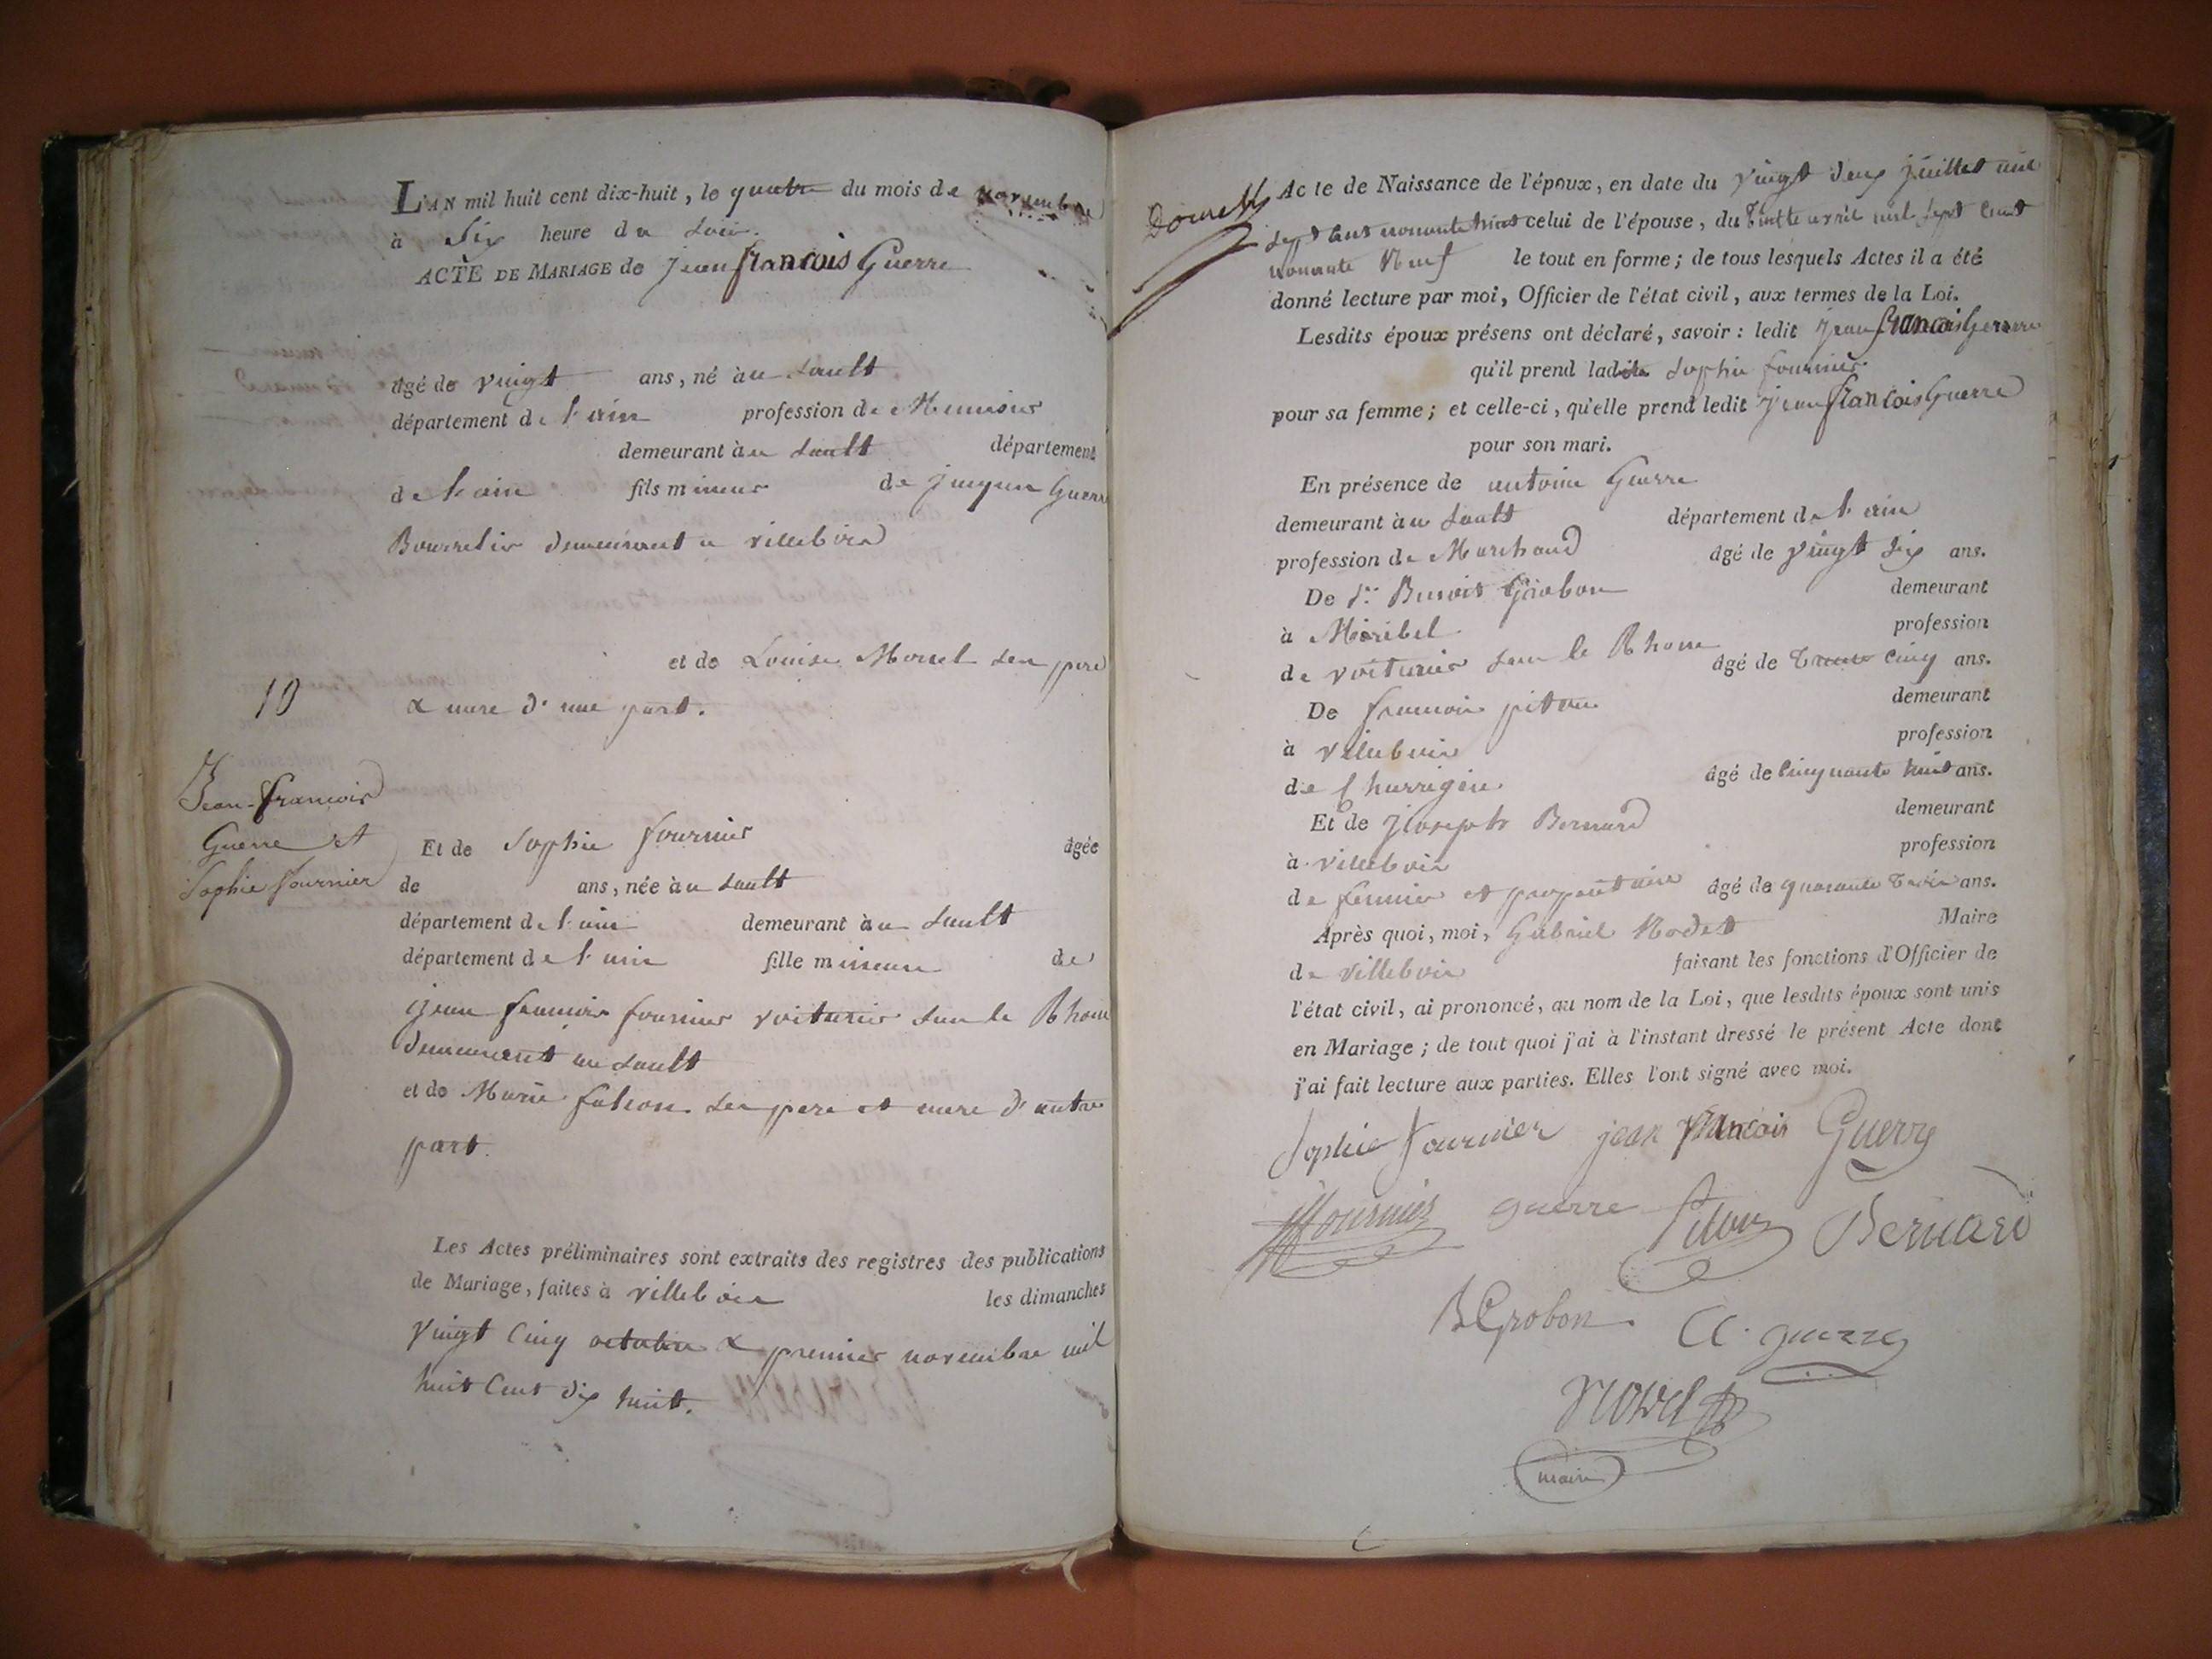 L'AN mil huit cent dix-huit, le quatre du mois de novembre
à Six heure du soir.
ACTE DE MARIAGE de Jean francois Guerre
âgé de vingt ans, né au Sault
département de l'ain profession de Menusier
demeurant au Sault département
de l'ain fils mineur de jacque Guerre
Bourrelier demeurant a villebois
et de Louise Morel ses pere
& mere d'une part.
19
Jean-francois
Guerre et
Sophie fournier
Et de Sophie fournier âgée
de ans, née au Sault
département de l'ain demeurant au Sault
département de l'ain fille mineure de
jean francois fournier voiturier sur le Rhone
demeurant au Sault
et de Marie falcon ses pere et mere d'autre
part.
Les Actes préliminaires sont extraits des registres des publications
de Mariage, faites à villebois les dimanches
vingt cinq octobre & premier novembre mil
huit Cent dix huit.
Acte de Naissance de l'époux, en date du vingt deux juillet mil
sept cent nonante huit celui de l'épouse, du trente avril mil sept cent
nonante Neuf le tout en forme; de tous lesquels Actes il a été
donné lecture par moi, Officier de l'état civil, aux termes de la Loi.
Lesdits époux présens ont déclaré, savoir: ledit jean francois Guerre
qu'il prend ladite Sophie fournier
pour sa femme; et celle-ci, qu'elle prend ledit jean francois Guerre
pour son mari.
En présence de antoine Guerre
demeurant au Sault département de l'ain
profession de Marchand âgé de vingt six ans.
De sr. Benoit Grobon demeurant
à Miribel profession
de voiturier sur le Rhone âgé de trente cinq ans.
De francois pitou demeurant
à villebois profession
de Chirurgien âgé de Cinquante huit ans.
Et de joseph Bernard demeurant
à villebois profession
de fermier et propriétaire âgé de quarante trois ans.
Après quoi, moi, Gabriel Nodet Maire
de villebois faisant les fonctions d'Officier de
l'état civil, ai prononcé, au nom de la Loi, que lesdits époux sont unis
en Mariage; de tout quoi j'ai à l'instant dressé le présent Acte dont
j'ai fait lecture aux parties. Elles l'ont signé avec moi.
Sophie fournier jean francois Guerre
fournier guerre Pitou Bernard
B Grobon A. guerre
Nodet
maire